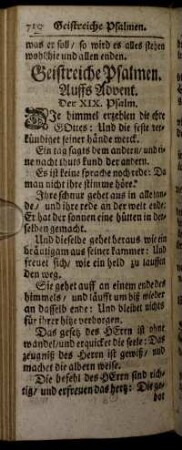 710 Geistreiche Psalmen.
was er soll/ so wird es alles stehen
wohl hie und allen enden.
Geistreiche Psalmen.
Auffs Advent.
Der XIX. Psalm.
DIe himmel erzehlen die ehre
GOttes: Und die feste ver-
kündiget seiner hände werck.
Ein tag sagts dem andern/ und ei-
ne nacht thuts kund der andern.
Es ist keine sprache noch rede: Da
man nicht ihre stimme höre.
Ihre schnur gehet aus in alle lan-
de/ und ihre rede an der welt ende:
Er hat der sonnen eine hütten in der-
selben gemacht.
Und dieselbe gehet heraus wie ein
bräutigam aus seiner kammer: Und
freuet sich/ wie ein held zu lauffen
den weg.
Sie gehet auff an einem ende des
himmels/ und läufft um biß wieder
an dasselb ende: Und bleibet nichts
für ihrer hitz verborgen.
Das gesetz des HErrn ist ohne
wandel/ und erquicket die seele: Das
zeugniß des HErrn ist gewiß/ und
machet die albern weise.
Die befehl des HErrn sind rich-
tig/ und erfreuen das hertz: Die ge-
bot